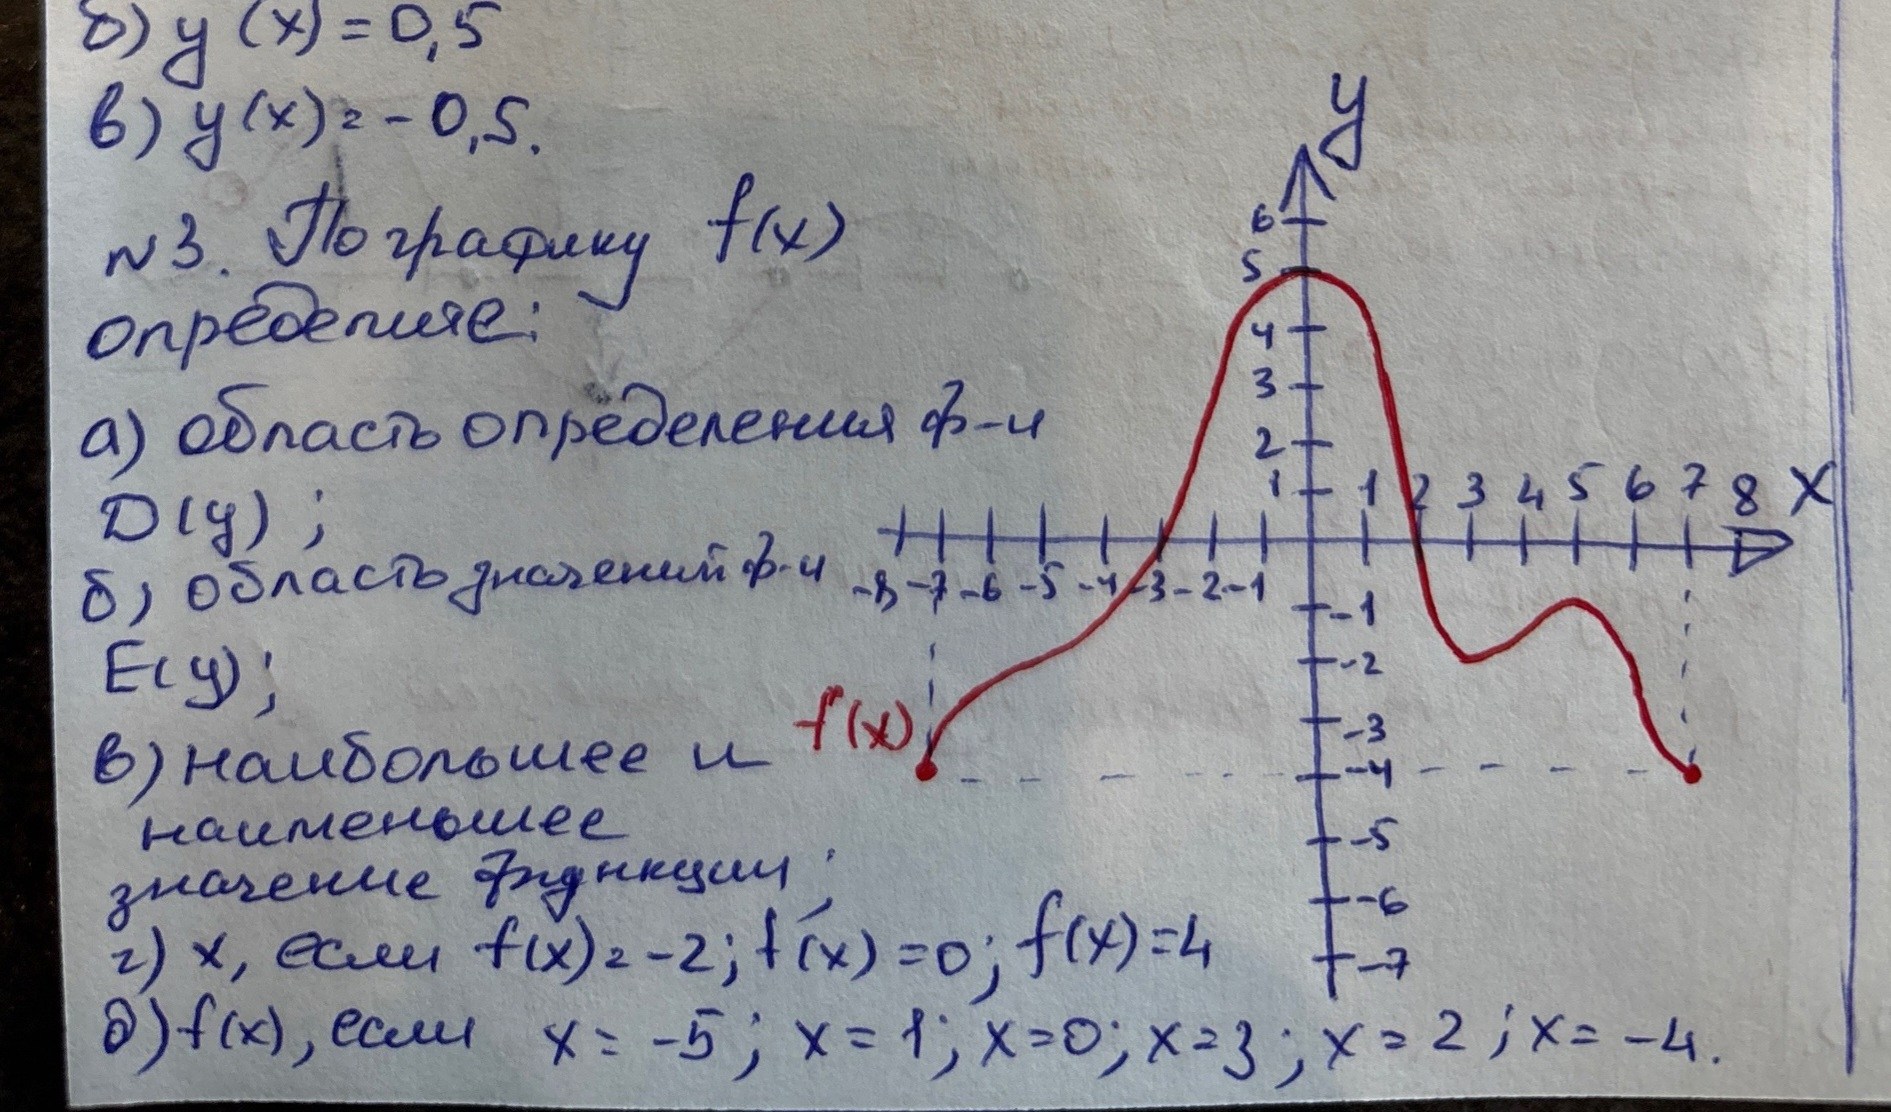 б) y(x)=0,5
в) y(x)=-0,5.
№3. По графику f(x)
определите:
а) область определения ф-и
D(y);
б) область значений ф-и
E(y);
в) наибольшее и
наименьшее
значение функции;
г) x, если f(x)=-2; f(x)=0; f(x)=4
д) f(x), если x=-5; x=1; x=0; x=3; x=2; x=-4.
y
6
5
4
3
2
1
1 2 3 4 5 6 7 8 X
-8 -7 -6 -5 -4 -3 -2 -1
-1
-2
f(x)
-3
-4
-5
-6
-7